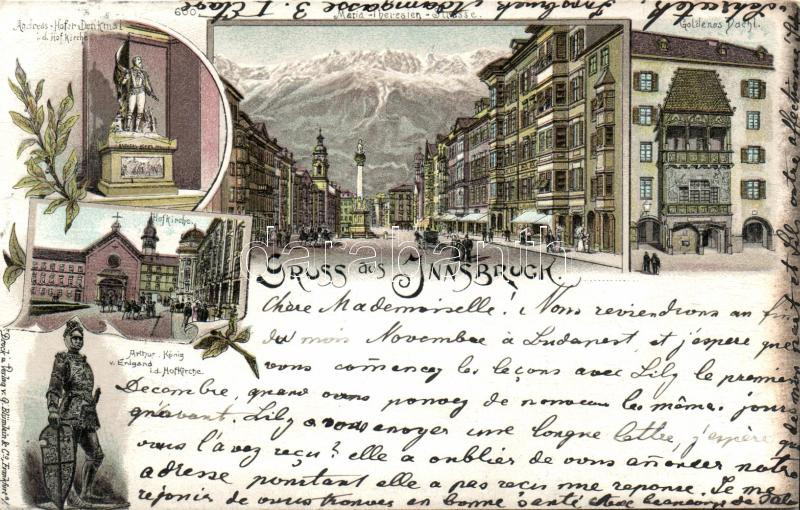 Andreas-Hofer-Denkmal
i.d. Hofkirche
600
Maria-Theresien-Strasse
Goldenes Dachl.
Innsbruck
3. I Etage
Hofkirche.
Gruss aus Innsbruck.
Arthur. König
v. England
i.d. Hofkirche.
Druck u. Verlag v.
Chère Mademoiselle! Nous reviendrons au fin
du mois Novembre à Budapest, et j'espère que
vous comencez les leçons avec Lily le premier
Decembre, quand vous pouvez de nouveau les même jours
qu'avant. Lily a vous envoyer une longue lettre, j'espère
vous l'avez reçu? elle a oublier de vous notre
adresse pourtant elle a pas reçu une reponse. Je me
rejouie de vous trouver en bonne santé avec beaucoup de
darabanth